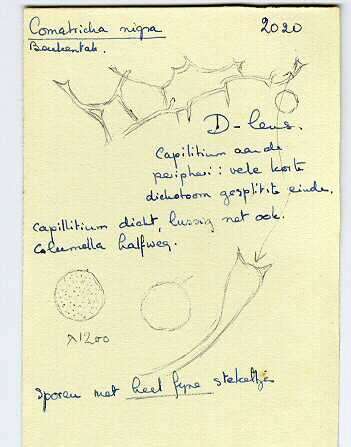 Comatricha nigra 2020
Beukentak.
D-lens.
Capilitium aan de
peripheri: vele korte
dichotoom gesplitste einden.
Capillitium dicht, lussig net ook.
Columella halfweg.
λ1200
Sporen met heel fyne stekeltjes